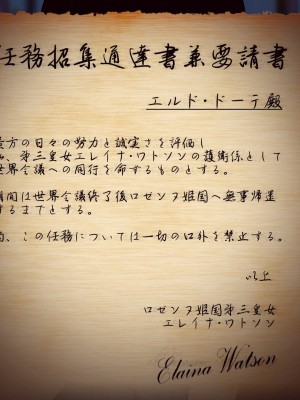 任務招集通達書兼要請書
エルド・ドーテ殿
貴方の日々の努力と誠実さを評価し
、第三皇女エレイナ・ワトソンの護衛係として
世界会議への同行を命ずるものとする。
期間は世界会議終了後ロゼンヌ姫国へ無事帰還
するまでとする。
尚、この任務については一切の口外を禁止する。
以上
ロゼンヌ姫国第三皇女
エレイナ・ワトソン
Elaina Watson